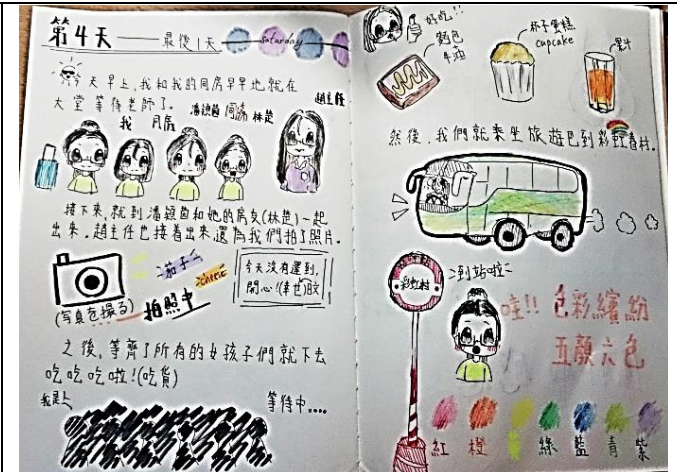 第4天——最後1天 Saturday
今天早上,我和我的同房早早地就在
大堂等待老師了。
我 同房 潘穎茵 同房 林楚 趙主任
接下來,就到潘穎茵和她的房友(林楚)一起
出來。趙主任也接着出來,還為我們拍了照片。
茄子~
cheese
(写真を撮る) 拍照中
今天沒有遲到,
開心!
之後,等齊了所有的女孩子們就下去
吃吃吃啦!(吃貨)
等待中....
好吃!!
麵包
牛油
杯子蛋糕
cupcake
果汁
然後,我們就乘坐旅遊巴到彩虹春村。
彩虹村
到站啦~
哇!! 色彩繽紛
五顏六色
紅 橙 綠 藍 青 紫